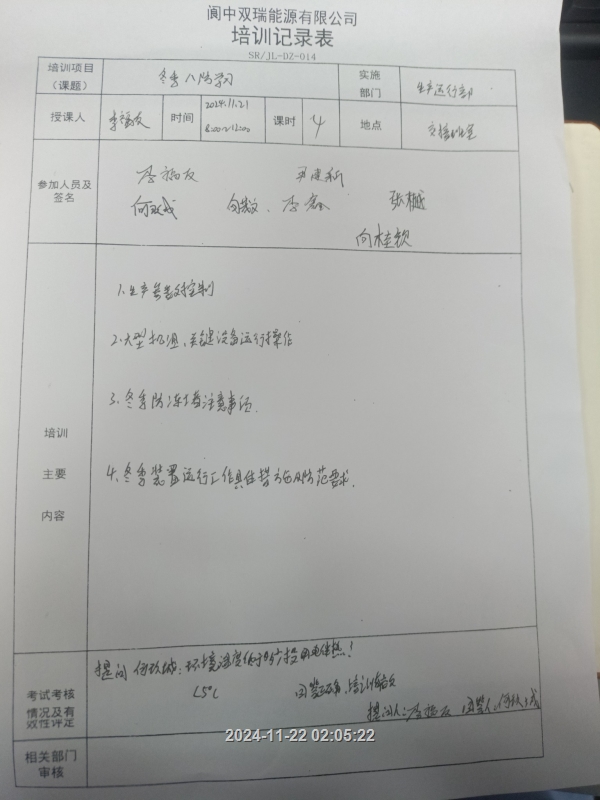 阆中双瑞能源有限公司
培训记录表
SR/JL-DZ-014
培训项目（课题） 冬季八防学习 实施部门 生产运行部
授课人 李福友 时间 2024.11.21 8:00-12:00 课时 4 地点 交接班室
参加人员及签名
李福友
何玖城 李鑫 张樾
向桂锁
培训主要内容
1.生产参数对控制
2.大型机组、关键设备运行操作
3.冬季防冻 注意事项.
4.冬季装置运行工作具体措施及防范要求.
考试考核情况及有效性评定
提问 何玖城:环境温度低于 投用电伴热!
<5℃ 回答正确,培训有效
提问人:李福友 回答人:何玖城
2024-11-22 02:05:22
相关部门审核